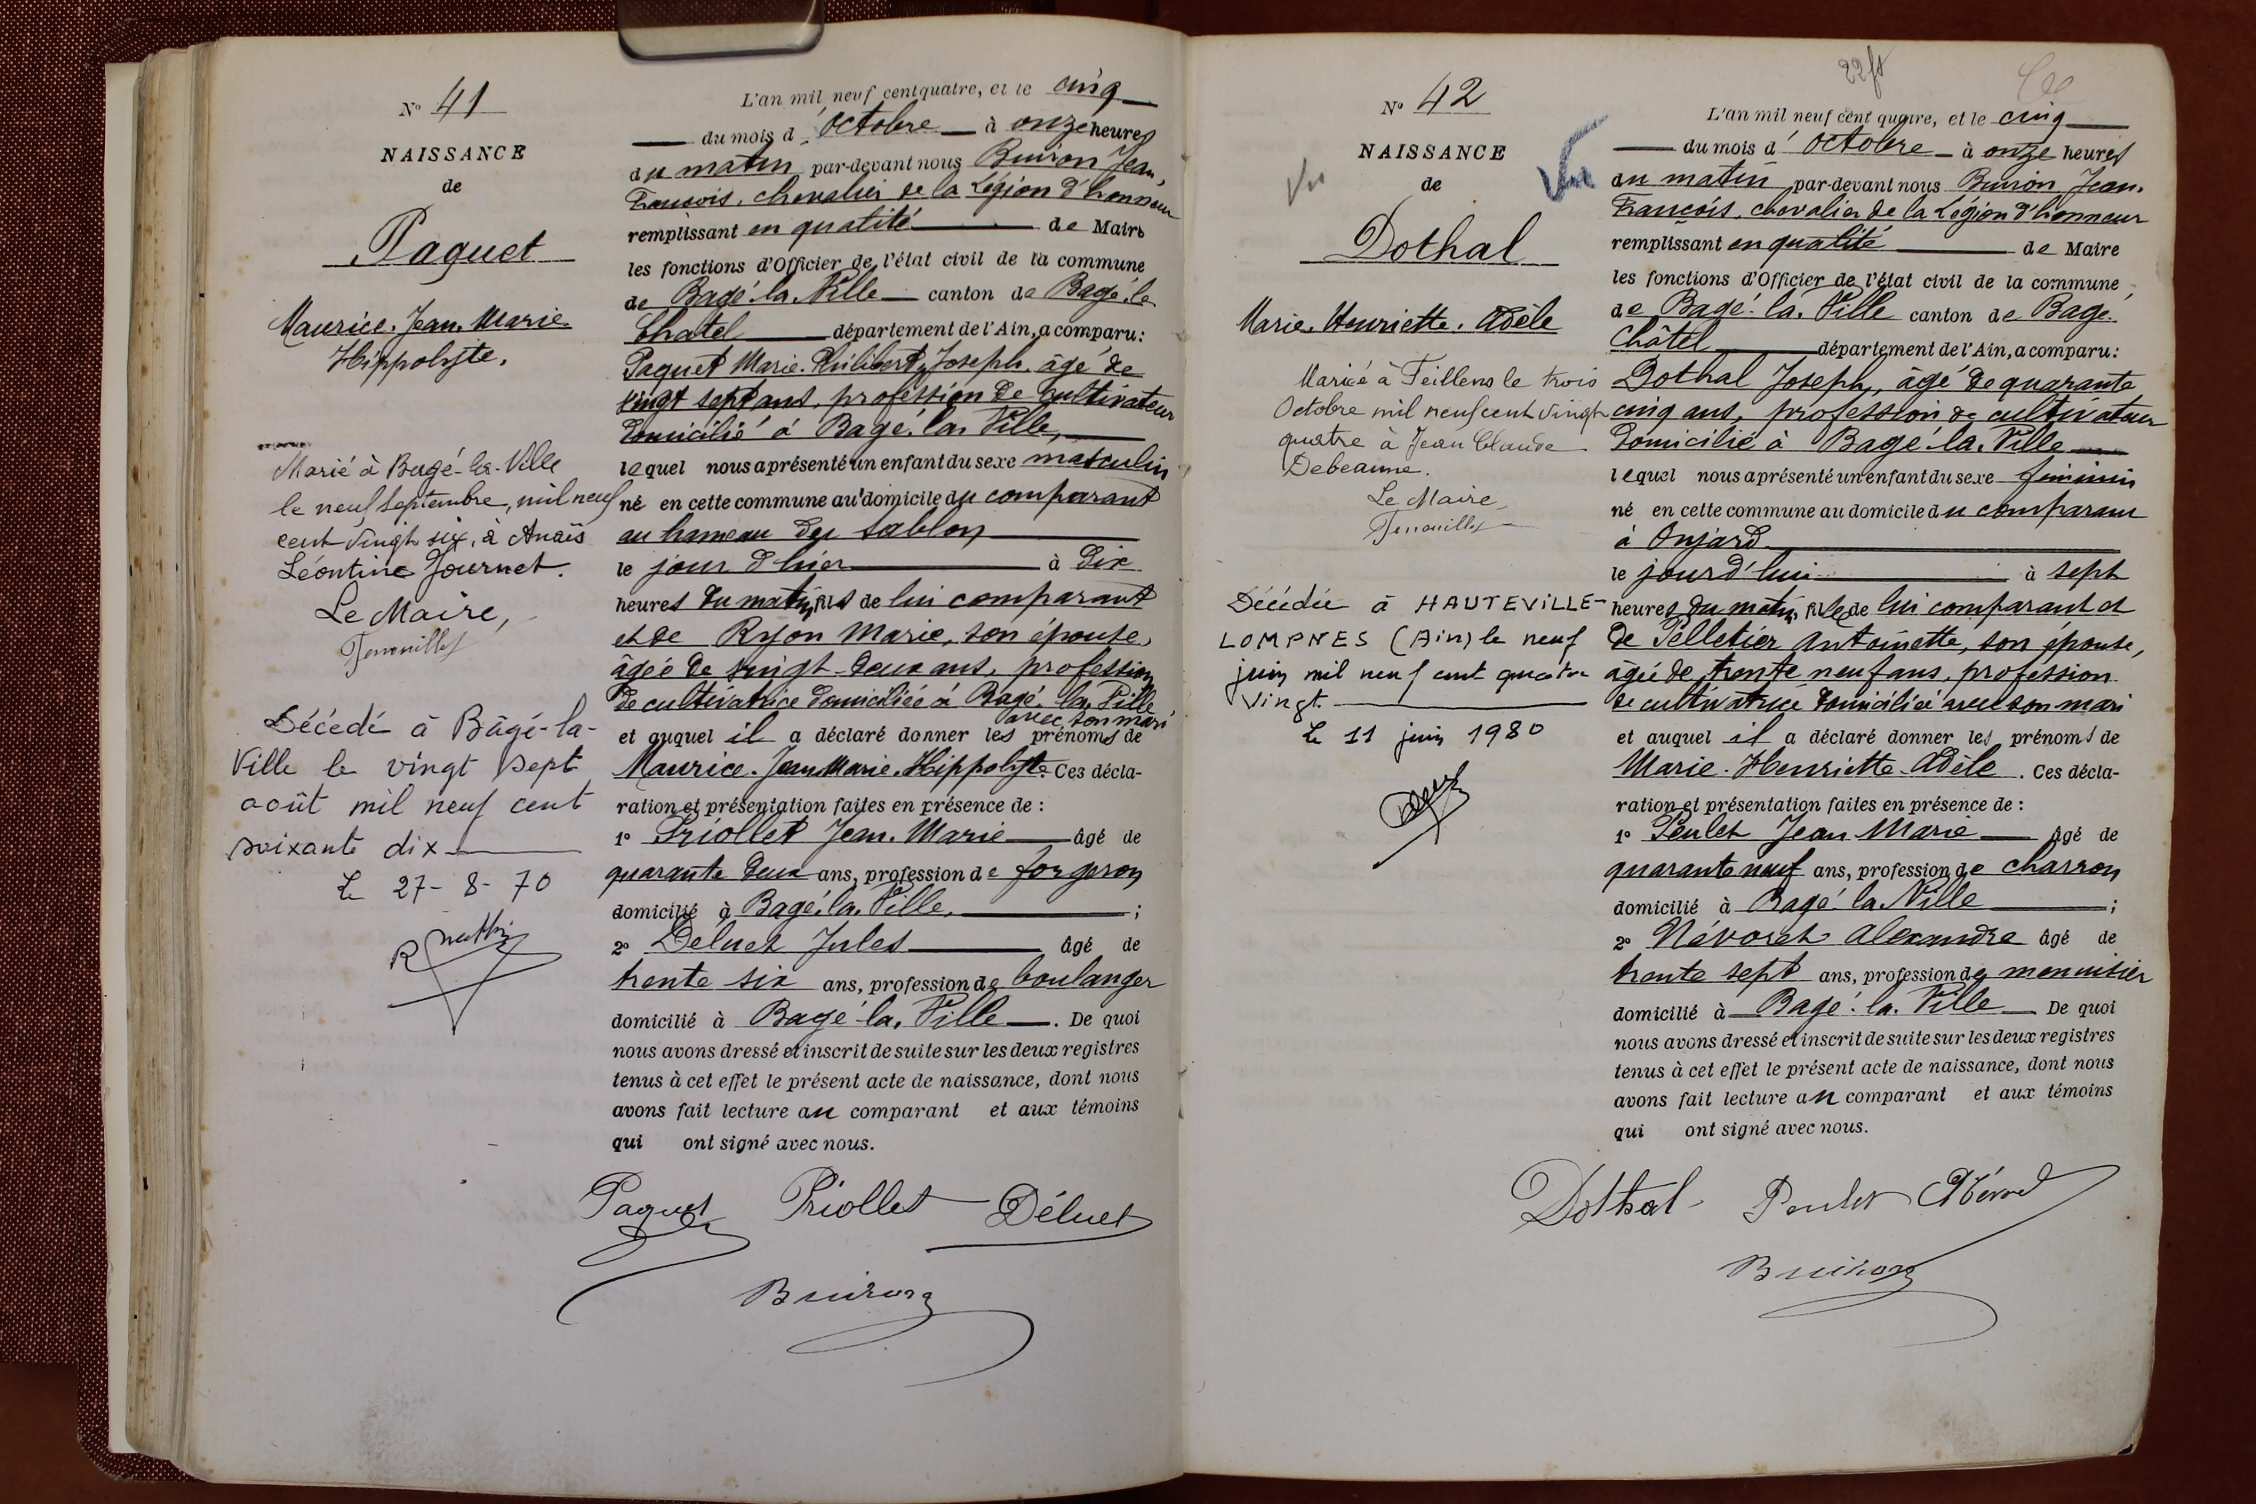 N° 41
NAISSANCE
de
Paquet
Maurice. Jean. Marie.
Hippolyte.
Marié à Bagé-la-Ville
le neuf septembre, mil neuf
cent vingt six, à Anaïs
Léontine Journet.
Le Maire,
Décédé à Bâgé-la-
Ville le vingt sept
août mil neuf cent
soixante dix
Le 27-8-70
L'an mil neuf cent quatre, et le cinq
du mois d'Octobre à onze heures
du matin par-devant nous Buiron Jean,
François, chevalier de la Légion d'honneur
remplissant en qualité de Maire
les fonctions d'Officier de l'état civil de la commune
de Bagé-la-Ville canton de Bagé-le
Chatel département de l'Ain, a comparu:
Paquet Marie. Philibert, Joseph, âgé de
vingt sept ans, profession de Cultivateur
domicilié à Bagé-la-Ville,
lequel nous a présenté un enfant du sexe masculin
né en cette commune au domicile du comparant
au hameau du Sablon
le jour d'hier à dix
heures du matin, fils de lui comparant
et de Ryon Marie, son épouse,
âgée de vingt-deux ans, profession
de cultivatrice domiciliée à Bagé-la-Ville
avec son mari
et auquel il a déclaré donner les prénoms de
Maurice. Jean Marie. Hippolyte. Ces décla-
ration et présentation faites en présence de :
1° Priollet Jean. Marie âgé de
quarante deux ans, profession de forgeron
domicilié à Bagé-la-Ville, ;
2° Déluet Jules âgé de
trente six ans, profession de boulanger
domicilié à Bagé-la-Ville. De quoi
nous avons dressé et inscrit de suite sur les deux registres
tenus à cet effet le présent acte de naissance, dont nous
avons fait lecture au comparant et aux témoins
qui ont signé avec nous.
Paquet Priollet Déluet
Buiron
N° 42
NAISSANCE
de
Vu
Vu
Dothal
Marie. Henriette. Adèle
Mariée à Feillens le trois
Octobre mil neuf cent vingt
quatre à Jean Claude
Debeaune.
Le Maire
Décédée à HAUTEVILLE-
LOMPNES (Ain) le neuf
juin mil neuf cent quatre
vingt.
Le 11 juin 1980
L'an mil neuf cent quatre, et le cinq
du mois d'Octobre à onze heures
du matin par-devant nous Buiron, Jean.
François, chevalier de la Légion d'honneur
remplissant en qualité de Maire
les fonctions d'Officier de l'état civil de la commune
de Bagé-la-Ville canton de Bagé
Châtel département de l'Ain, a comparu:
Dothal Joseph, âgé de quarante
cinq ans, profession de cultivateur
domicilié à Bagé-la-Ville
lequel nous a présenté un enfant du sexe féminin
né en cette commune au domicile du comparant
à Onjard
le jourd'hui à sept
heures du matin, fille de lui comparant et
de Pelletier Antoinette, son épouse,
âgée de trente neuf ans, profession
de cultivatrice domiciliée avec son mari
et auquel il a déclaré donner les prénoms de
Marie-Henriette-Adèle. Ces décla-
ration et présentation faites en présence de :
1° Peulet Jean Marie âgé de
quarante neuf ans, profession de charron
domicilié à Bagé-la-Ville ;
2° Névoret Alexandre âgé de
trente sept ans, profession de menuisier
domicilié à Bagé-la-Ville De quoi
nous avons dressé et inscrit de suite sur les deux registres
tenus à cet effet le présent acte de naissance, dont nous
avons fait lecture au comparant et aux témoins
qui ont signé avec nous.
Dothal Peulet
Buiron